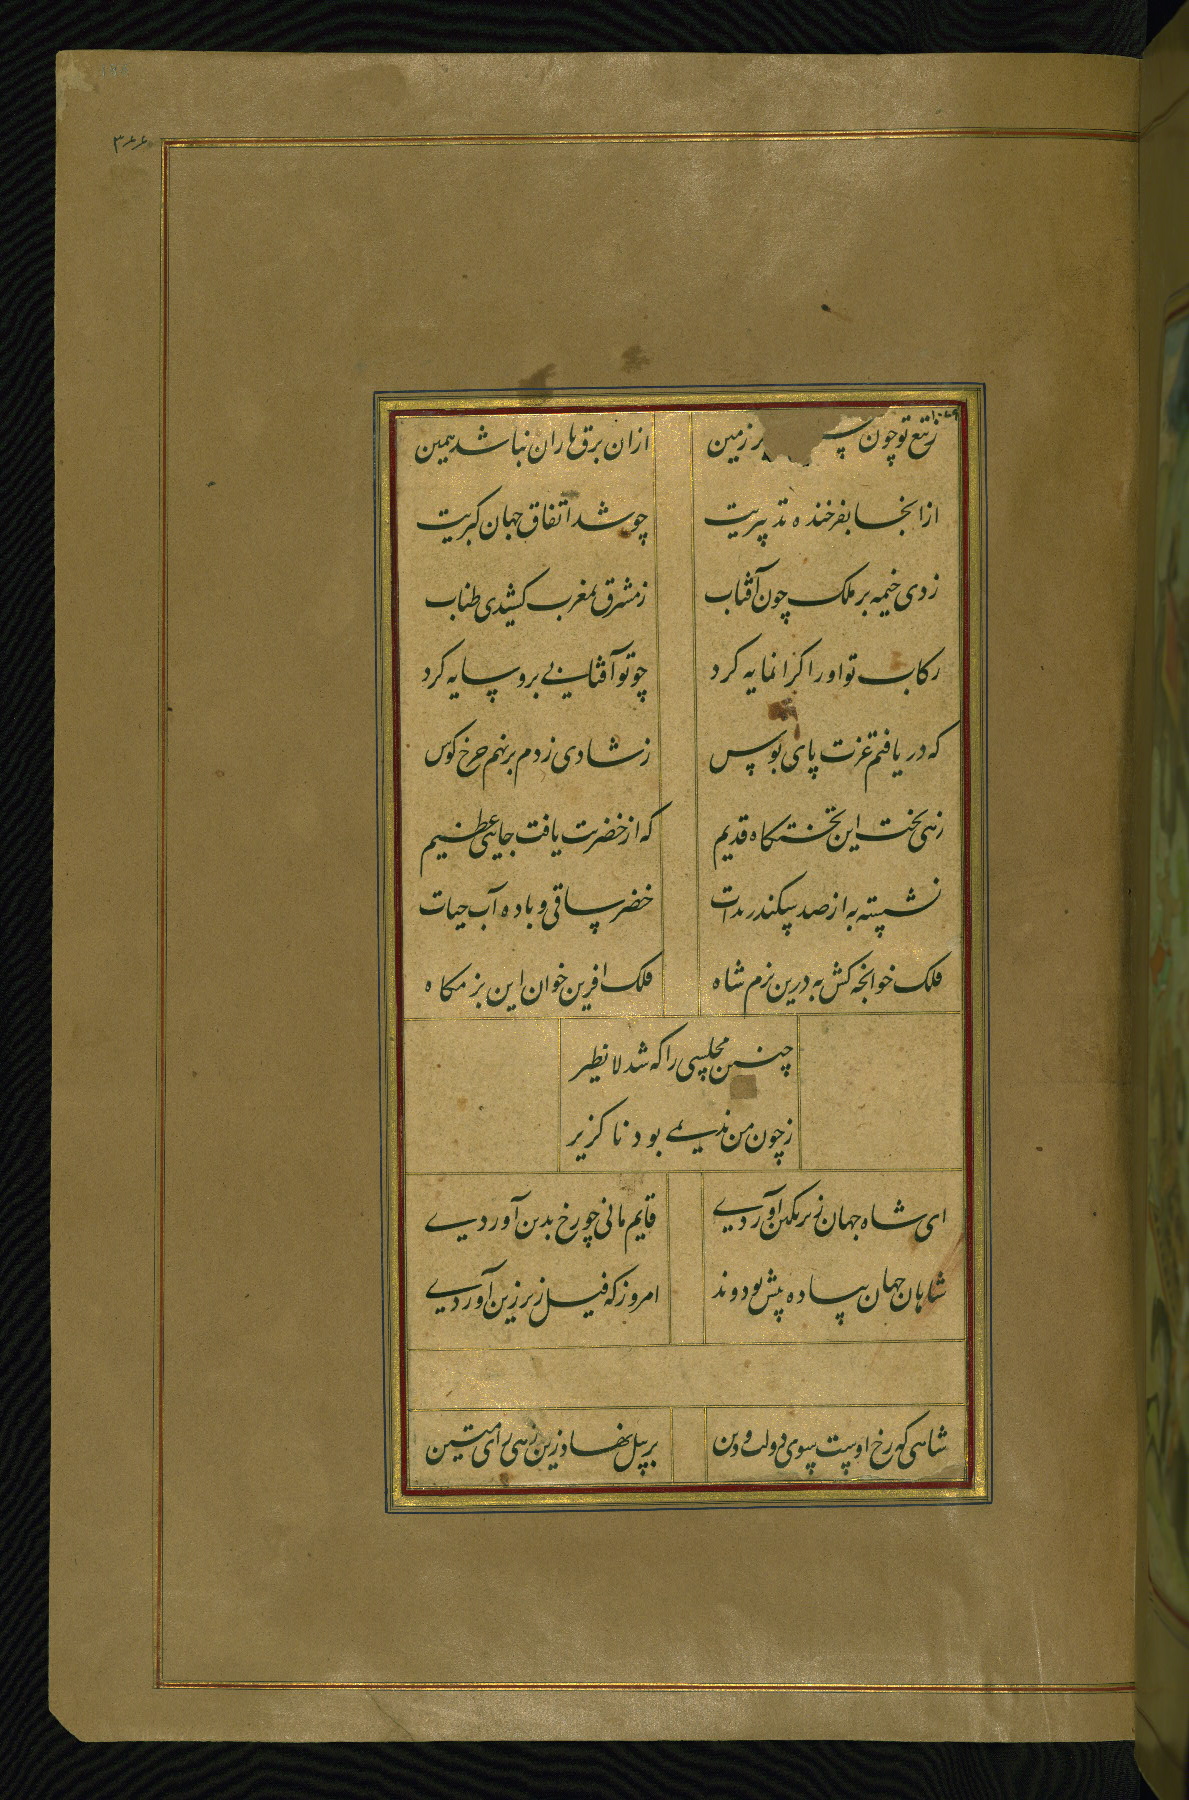 ۳۴۴
ز تیغ تو چون بر زمین ازان برق باران نباشد همین
از انجا بفرخنده تدبیریت چو شد اتفاق جهان گیریت
زدی خیمه بر ملک چون آفتاب ز مشرق بمغرب کشیدی طناب
رکاب تو او را گرانمایه کرد چو تو آفتابی برو سایه کرد
که دریافتم عزت پای بوس ز شادی زدم بر نهم چرخ کوس
زهی بخت این تختگاه قدیم که از خضرت یافت جایی عظیم
نشسته به از صد سکندر خضر ساقی و باده آب حیات
فلک خوانچه کش به درین بزم شاه فلک افرین خوان این بزمگاه
چنین مجلسی را که شد لا نظیر
ز چون من ندیمی بود ناگزیر
ای شاه جهان آوردی قایم مانی چو رخ بدین آوردی
شاهان جهان پیاده پیش تو دوند امروز که فیل زیر زین آوردی
شاهی که رخ اوست سوی دولت و دین بر پیل نهاد زین زهی رای متین